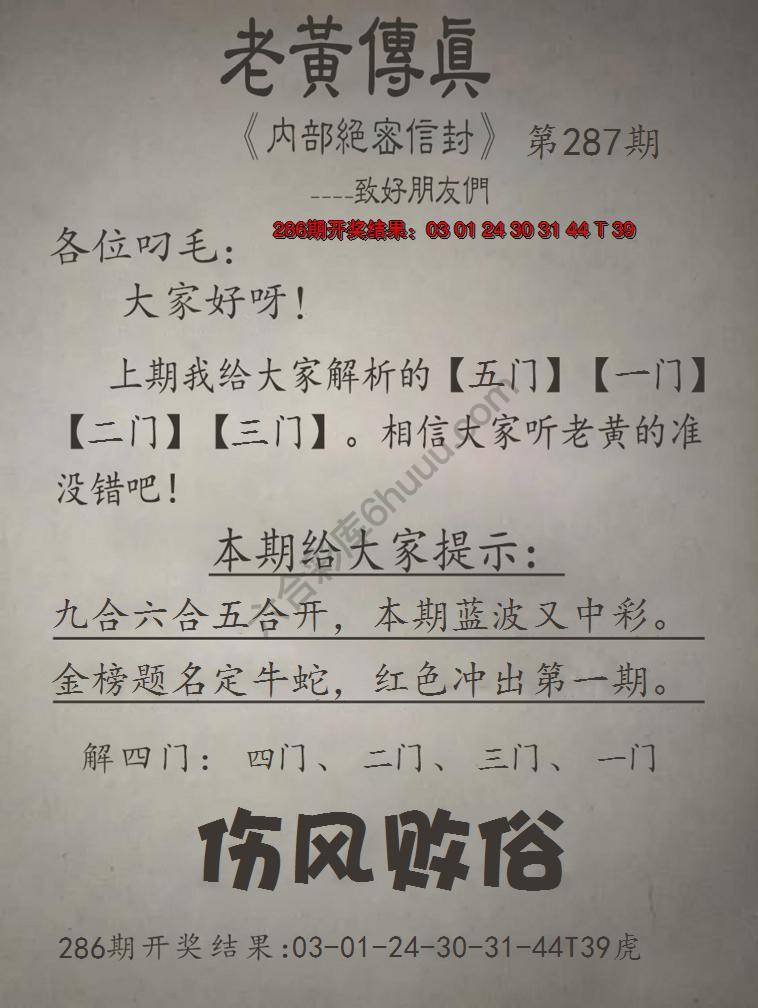 老黃傳眞
《内部絕密信封》 第287期
----致好朋友們
286期开奖结果：03 01 24 30 31 44 T 39
各位叼毛：
大家好呀！
上期我给大家解析的【五门】【一门】
【二门】【三门】。相信大家听老黄的准
没错吧！
六合彩库6huuu.com
本期给大家提示：
九合六合五合开，本期蓝波又中彩。
金榜题名定牛蛇，红色冲出第一期。
解四门： 四门、 二门、 三门、 一门
伤风败俗
286期开奖结果:03-01-24-30-31-44T39虎